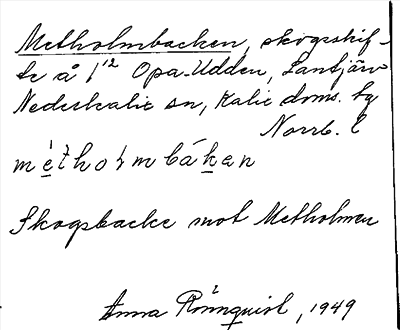 Metholmbacken, skogsskif-
te å 1¹² Opa-Udden, Lantjärv
Nederkalix sn, Kalix doms. tg
Norrb. l
metholmbákan
Skogsbacke mot Metholmen
Anna Rönnquist, 1949